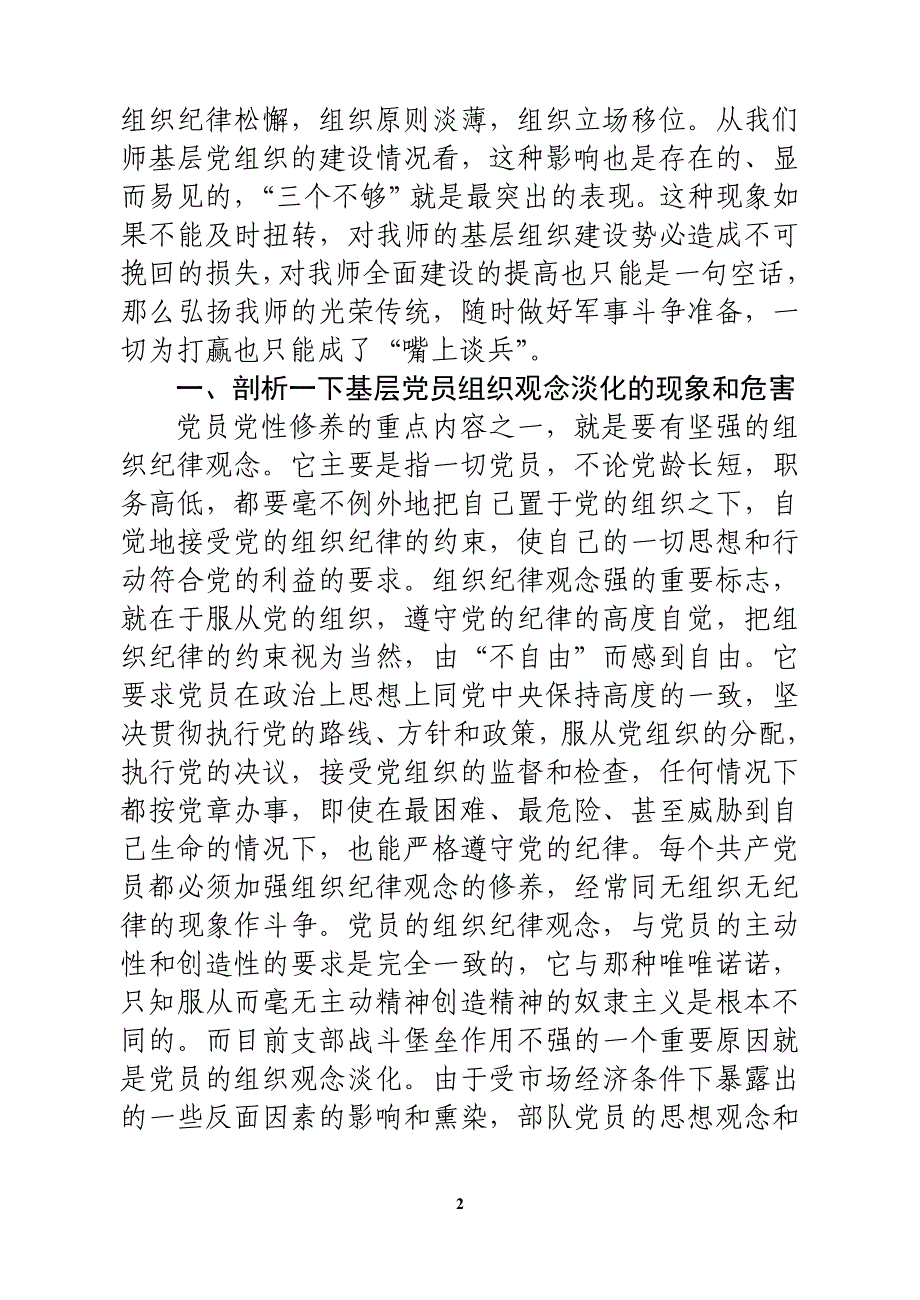 组织纪律松懈，组织原则淡薄，组织立场移位。从我们
师基层党组织的建设情况看，这种影响也是存在的、显
而易见的，“三个不够”就是最突出的表现。这种现象如
果不能及时扭转，对我师的基层组织建设势必造成不可
挽回的损失，对我师全面建设的提高也只能是一句空话，
那么弘扬我师的光荣传统，随时做好军事斗争准备，一
切为打赢也只能成了“嘴上谈兵”。
一、剖析一下基层党员组织观念淡化的现象和危害
党员党性修养的重点内容之一，就是要有坚强的组
织纪律观念。它主要是指一切党员，不论党龄长短，职
务高低，都要毫不例外地把自己置于党的组织之下，自
觉地接受党的组织纪律的约束，使自己的一切思想和行
动符合党的利益的要求。组织纪律观念强的重要标志，
就在于服从党的组织，遵守党的纪律的高度自觉，把组
织纪律的约束视为当然，由“不自由”而感到自由。它
要求党员在政治上思想上同党中央保持高度的一致，坚
决贯彻执行党的路线、方针和政策，服从党组织的分配，
执行党的决议，接受党组织的监督和检查，任何情况下
都按党章办事，即使在最困难、最危险、甚至威胁到自
己生命的情况下，也能严格遵守党的纪律。每个共产党
员都必须加强组织纪律观念的修养，经常同无组织无纪
律的现象作斗争。党员的组织纪律观念，与党员的主动
性和创造性的要求是完全一致的，它与那种唯唯诺诺，
只知服从而毫无主动精神创造精神的奴隶主义是根本不
同的。而目前支部战斗堡垒作用不强的一个重要原因就
是党员的组织观念淡化。由于受市场经济条件下暴露出
的一些反面因素的影响和熏染，部队党员的思想观念和
2